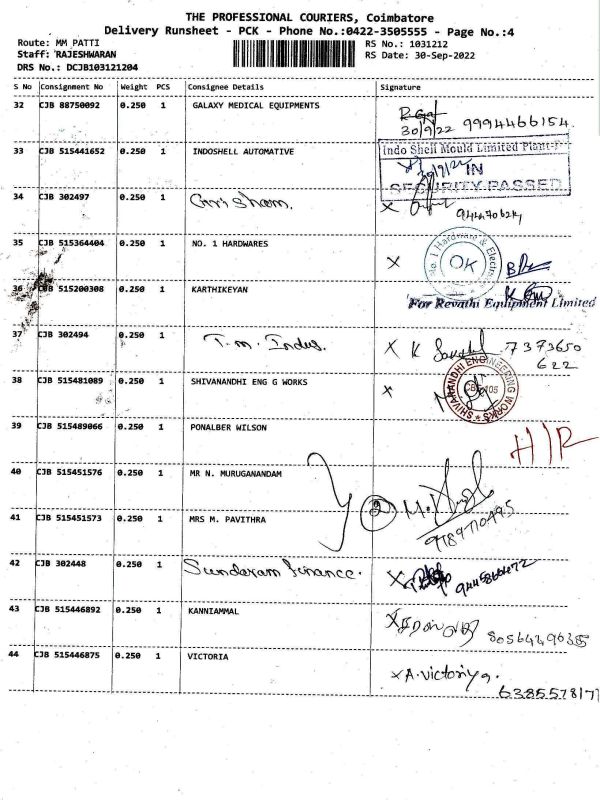 THE PROFESSIONAL COURIERS, Coimbatore
Delivery Runsheet - PCK - Phone No.:0422-3505555 - Page No.:4
Route: MM PATTI
RS No.: 1031212
Staff: RAJESHWARAN
RS Date: 30-Sep-2022
DRS No.: DCJB103121204
S No Consignment No Weight PCS Consignee Details Signature
32 CJB 88750092 0.250 1 GALAXY MEDICAL EQUIPMENTS
30/9/22 9994466154
33 CJB 515441652 0.250 1 INDOSHELL AUTOMATIVE
Indo Shell Mould Limited Plant-
IN
SECURITY PASSED
34 CJB 302497 0.250 1
35 CJB 515364404 0.250 1 NO. 1 HARDWARES X
No. 1 Hardware & Electri
OK
36 CJB 515200308 0.250 1 KARTHIKEYAN
For Revathi Equipment Limited
37 CJB 302494 0.250 1 T.M. Indus. X K
7373650
622
38 CJB 515481089 0.250 1 SHIVANANDHI ENG G WORKS X
SHIVANANDHI ENGINEERING WORKS
39 CJB 515489066 0.250 1 PONALBER WILSON
40 CJB 515451576 0.250 1 MR N. MURUGANANDAM
2
41 CJB 515451573 0.250 1 MRS M. PAVITHRA
42 CJB 302448 0.250 1 Sundaram finance. X
43 CJB 515446892 0.250 1 KANNIAMMAL X
44 CJB 515446875 0.250 1 VICTORIA
X A. victoriya.
638557817